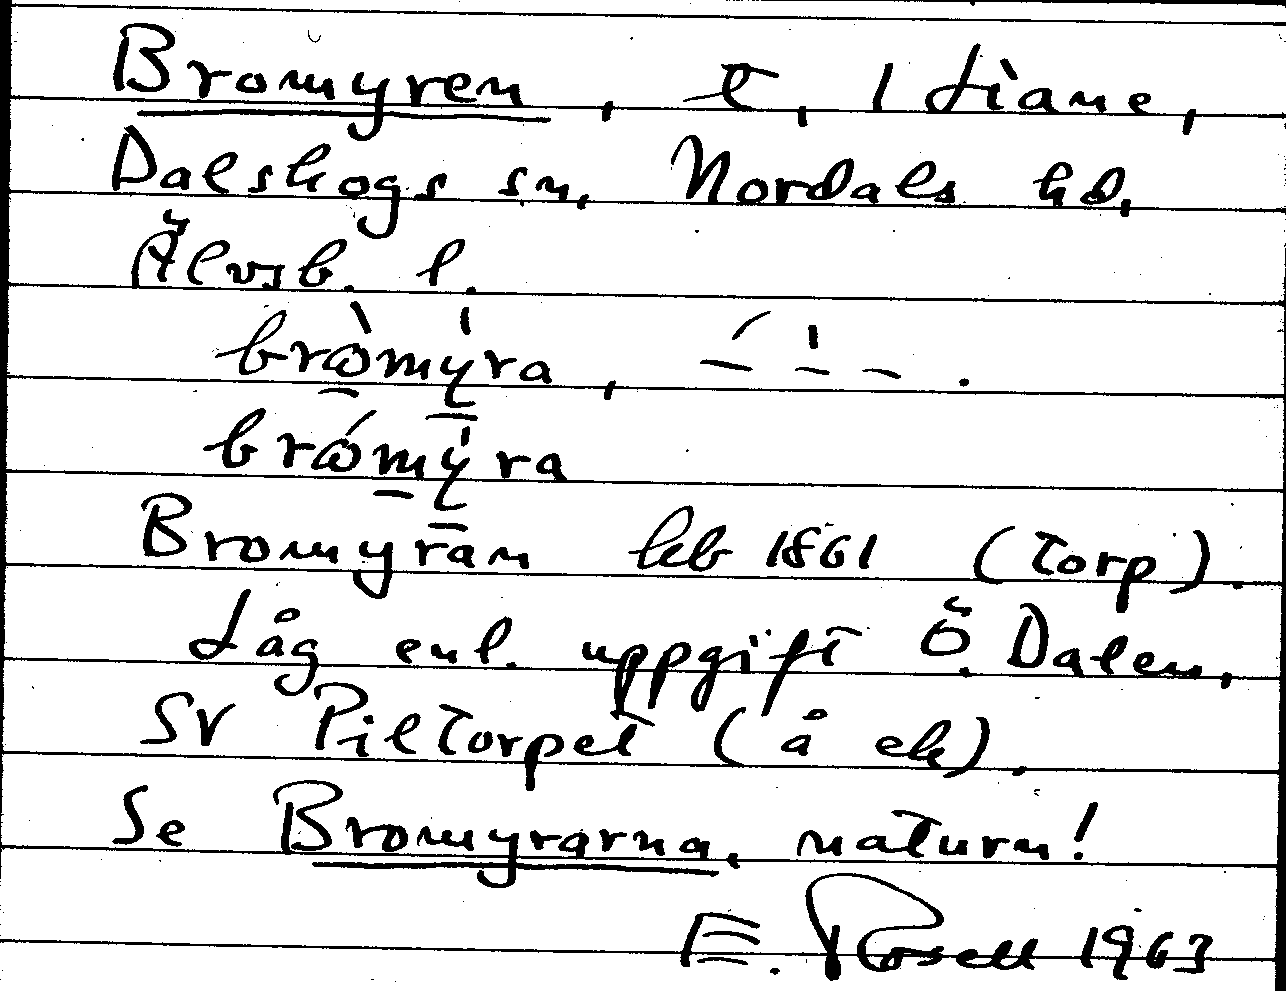 Bromyren, t, 1 Liane,
Dalskogs sn, Nordals hd,
Älvsb. l.
bròmyra,
brómyra
Bromyran hfb 1861 (torp).
Låg enl. uppgift Ö. Dalen,
SV Piltorpet (å ek).
Se Bromyrarna, naturn!
E. Rosell 1963